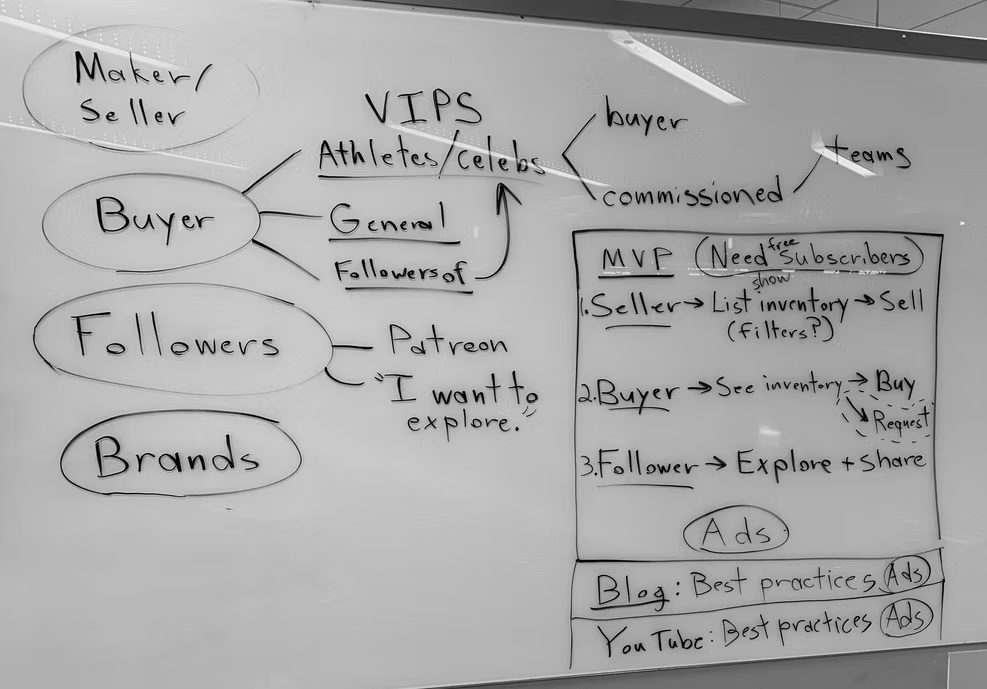 Maker/
Seller
Buyer
Followers
Brands
VIPS
Athletes/celebs
General
Followers of
buyer
commissioned
teams
Patreon
"I want to
explore."
MVP (Need free Subscribers)
show
1. Seller → List inventory → Sell
(filters?)
2. Buyer → See inventory → Buy
Request
3. Follower → Explore + Share
Ads
Blog: Best practices Ads
YouTube: Best practices Ads